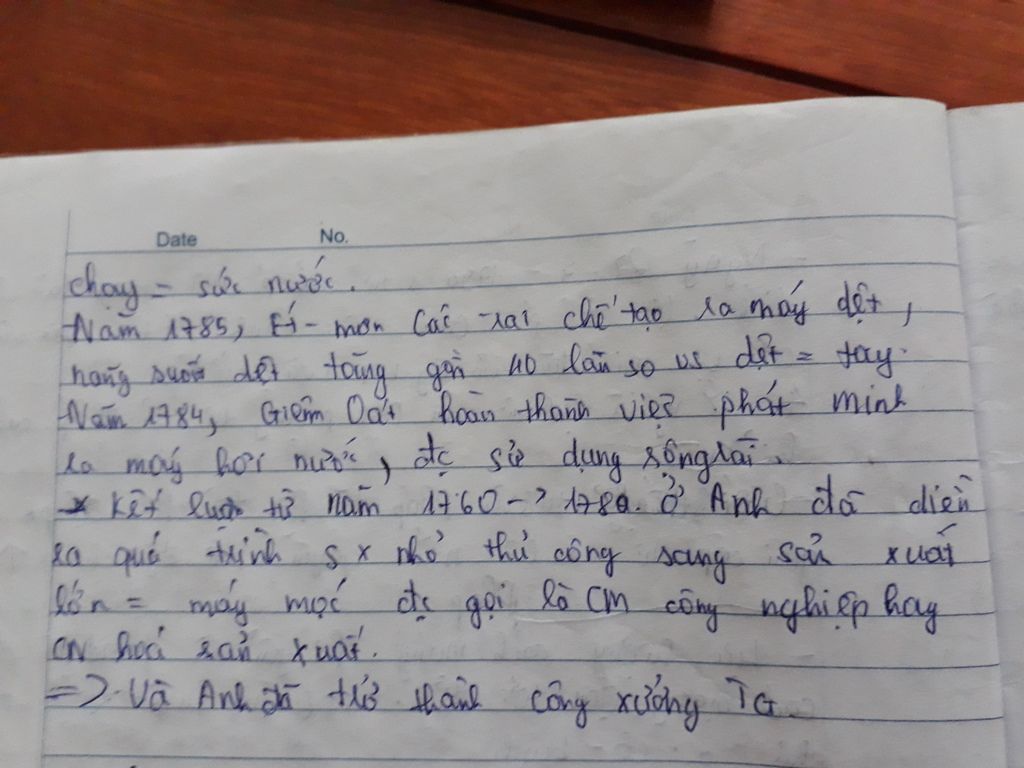 Date No.
chạy = sức nước.
Năm 1785, Ét-mơn Các-rai chế tạo ra máy dệt,
năng suất dệt tăng gần 40 lần so vs dệt = tay.
Năm 1784, Giêm Oát hoàn thành việc phát minh
ra máy hơi nước, đc sử dụng rộng rãi.
* Kết luận từ năm 1760 -> 1780. ở Anh đã diễn
ra quá trình sx nhỏ thủ công sang sản xuất
lớn = máy móc đc gọi là CM công nghiệp hay
CN hoá sản xuất.
=> Và Anh đã trở thành công xưởng TG.